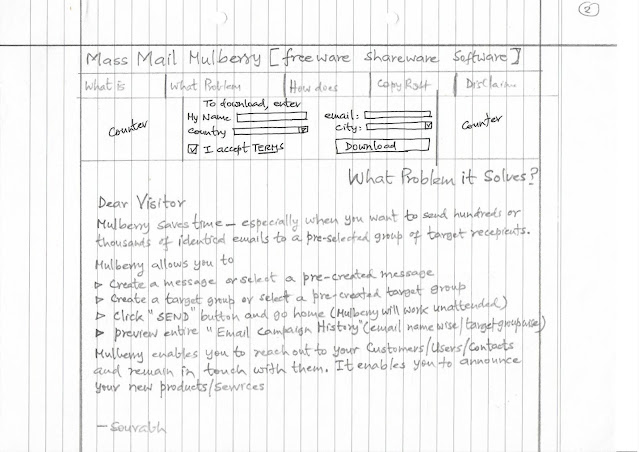 2
Mass Mail Mulberry [freeware shareware software]
What is What Problem How does Copy Right Disclaim..
To download, enter
My Name email:
Country City:
Counter Counter
I accept TERMS Download
What Problem it Solves?
Dear Visitor
Mulberry saves time - especially when you want to send hundreds or
thousands of identical emails to a pre-selected group of target recepients.
Mulberry allows you to
▷ Create a message or select a pre-created message
▷ Create a target group or select a pre-created target group
▷ Click "SEND" button and go home (Mulberry will work unattended)
▷ preview entire "Email Campaign History" (email name wise/target groupwise)
Mulberry enables you to reach out to your Customers/Users/Contacts
and remain in touch with them. It enables you to announce
your new products/Services
- Sourabh